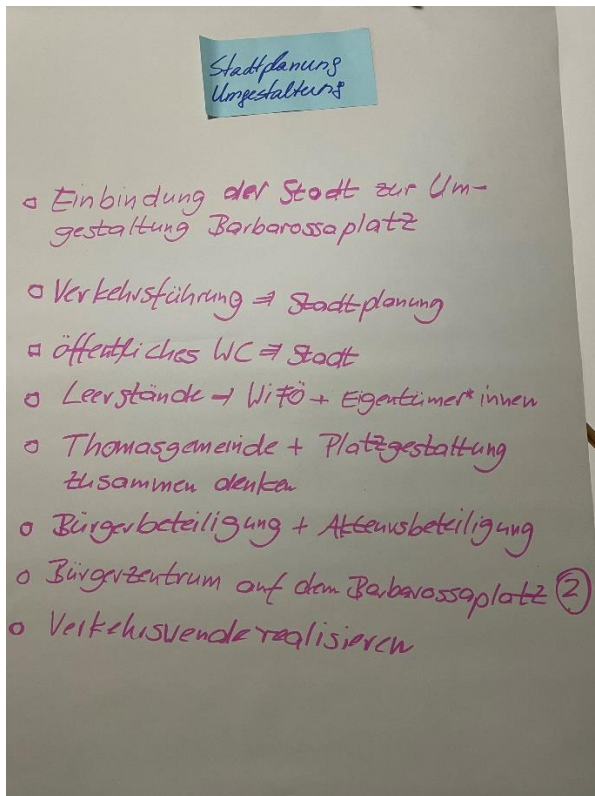 Stadtplanung
Umgestaltung
Einbindung der Stadt zur Um-
gestaltung Barbarossaplatz
Verkehrsführung ⇒ Stadtplanung
öffentliches WC ⇒ Stadt
Leerstände → WiFÖ + Eigentümer*innen
Thomasgemeinde + Platzgestaltung
zusammen denken
Bürgerbeteiligung +
Bürgerzentrum auf dem Barbarossaplatz 2
Verkehrswende realisieren